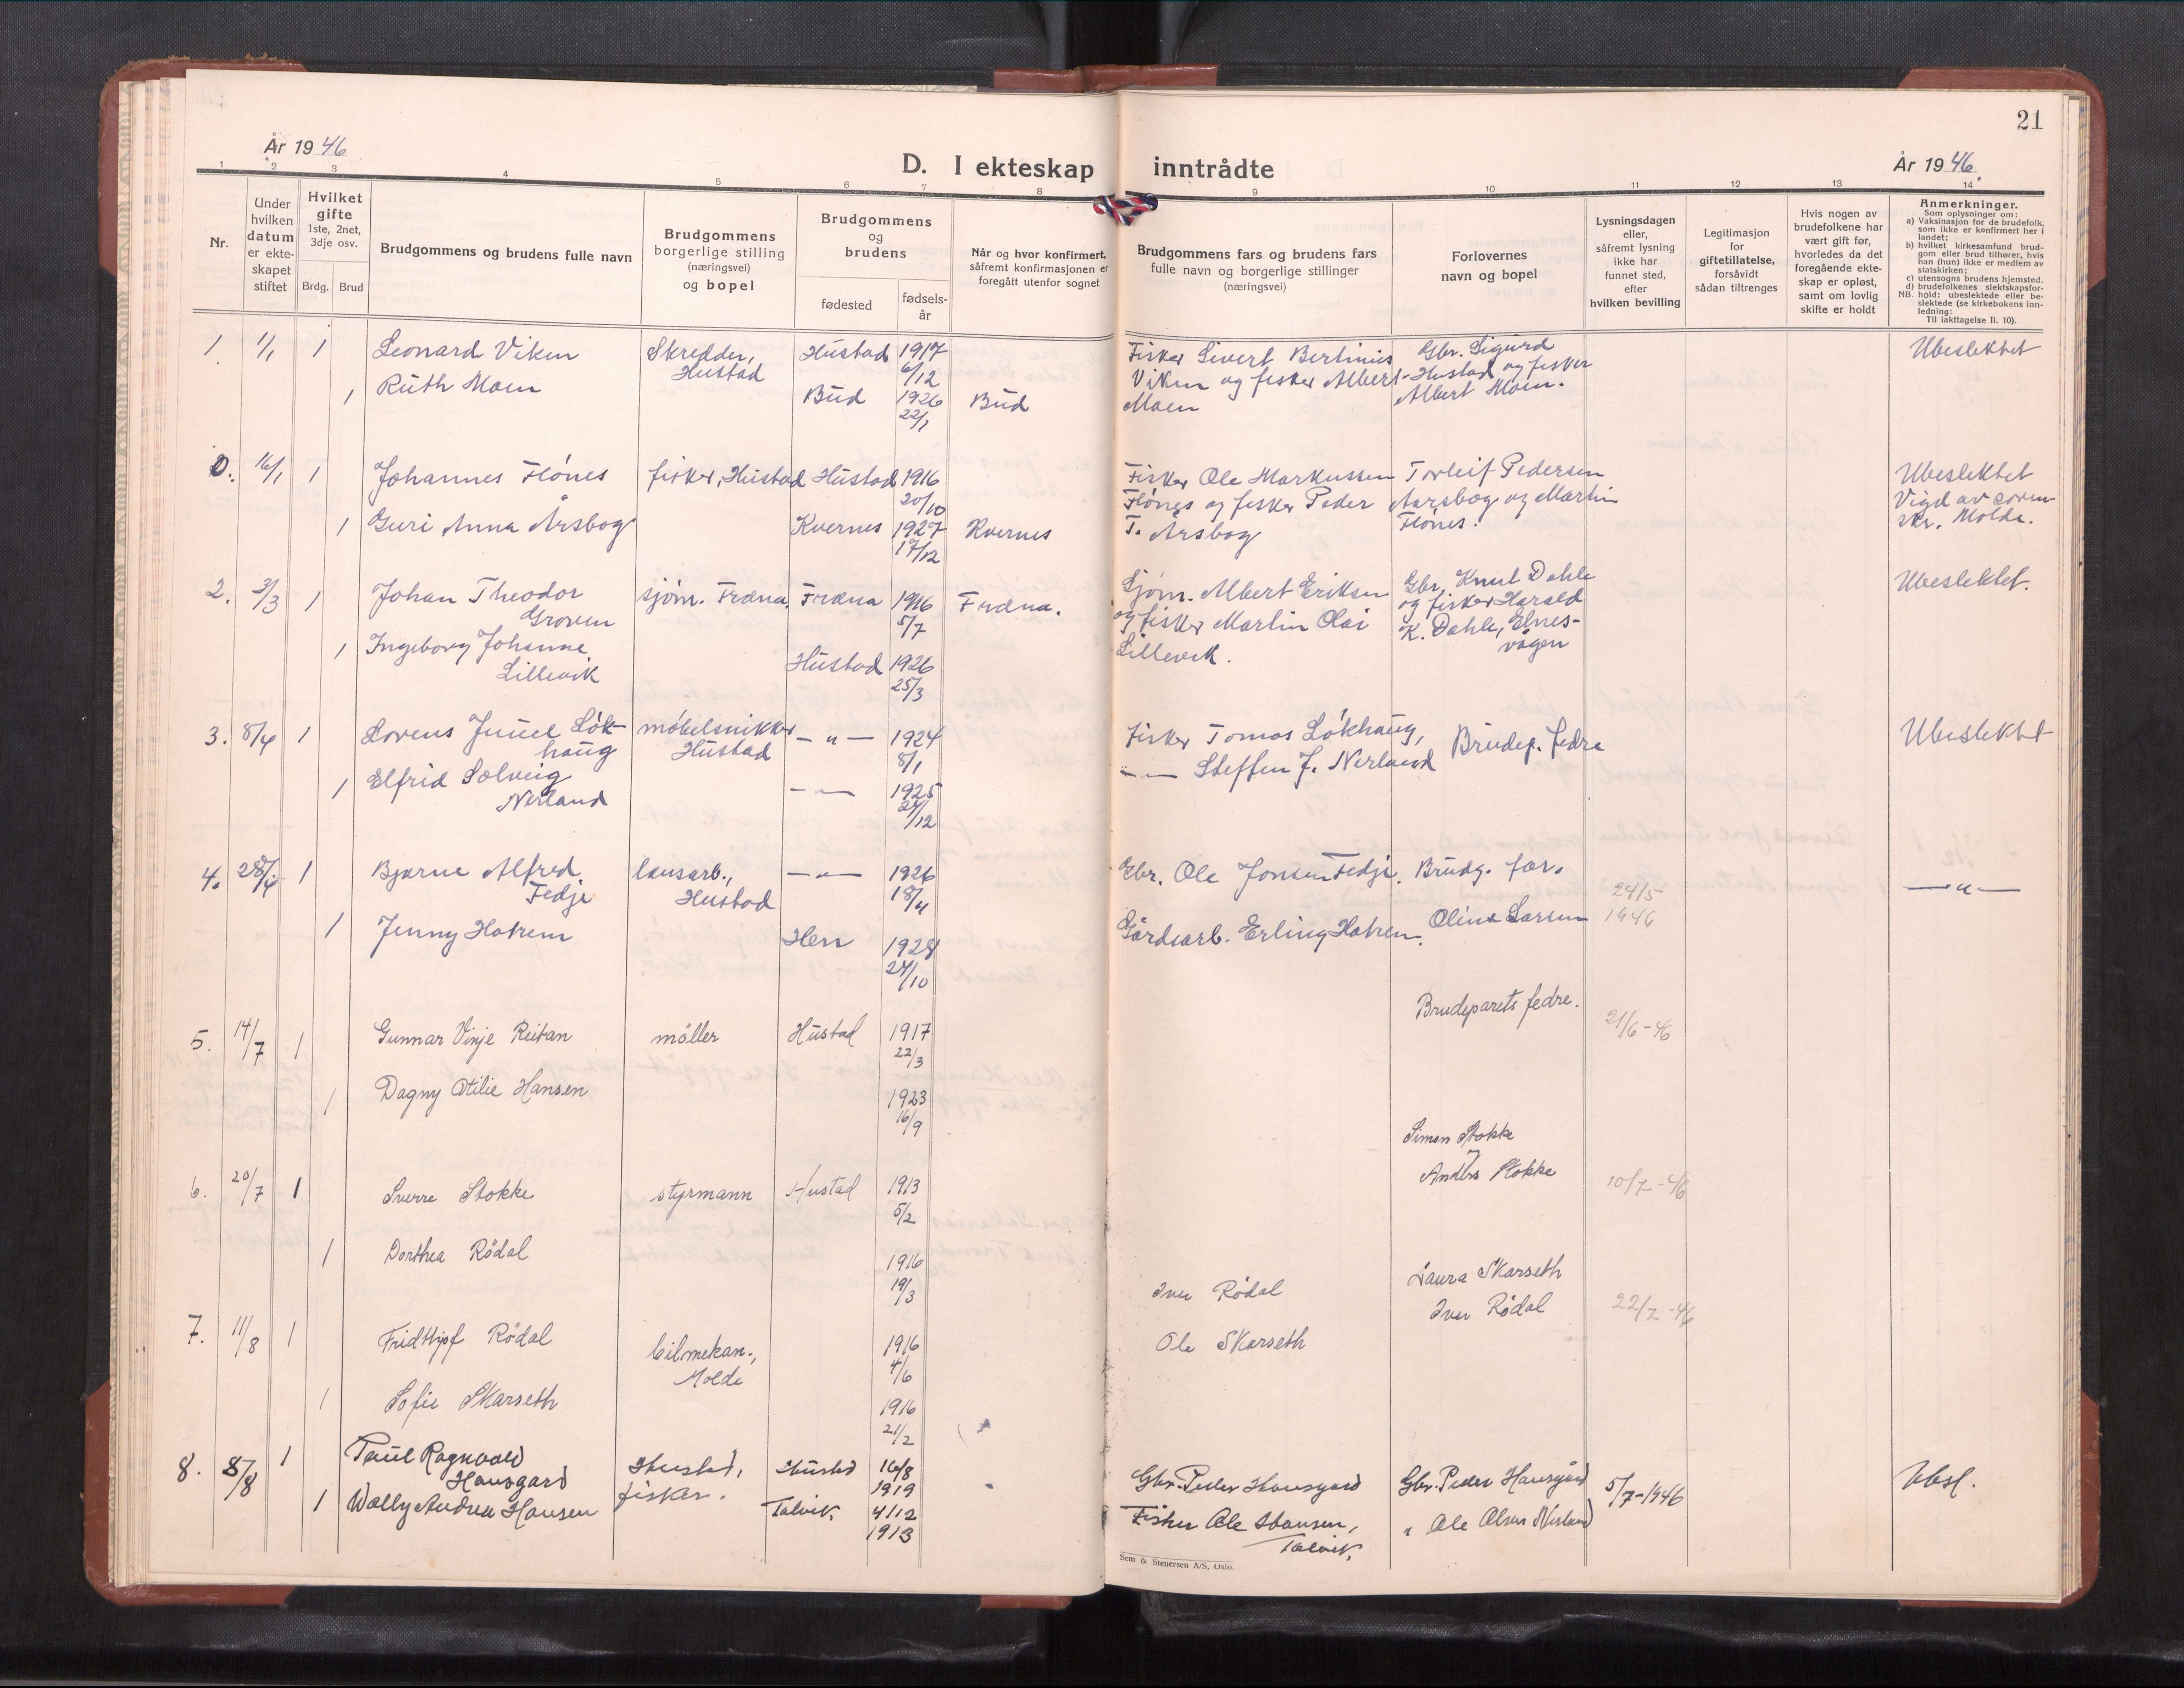 21
År 1946
D. I ekteskap inntrådte
År 1946.
1 2 3 4 5 6 7 8 9 10 11 12 13 14
Nr.
Under hvilken datum er ekteskapet stiftet
Hvilket gifte 1ste, 2net, 3dje osv.
Brdg. Brud
Brudgommens og brudens fulle navn
Brudgommens borgerlige stilling (næringsvei) og bopel
Brudgommens og brudens
fødested
fødselsår
Når og hvor konfirmert, såfremt konfirmasjonen er foregått utenfor sognet
Brudgommens fars og brudens fars fulle navn og borgerlige stillinger (næringsvei)
Forlovernes navn og bopel
Lysningsdagen eller, såfremt lysning ikke har funnet sted, efter hvilken bevilling
Legitimasjon for giftetillatelse, forsåvidt sådan tiltrenges
Hvis nogen av brudefolkene har vært gift før, hvorledes da det foregående ekteskap er opløst, samt om lovlig skifte er holdt
Anmerkninger.
Som oplysninger om:
a) Vaksinasjon for de brudefolk, som ikke er konfirmert her i landet;
b) hvilket kirkesamfund brudgom eller brud tilhører, hvis han (hun) ikke er medlem av statskirken;
c) utensogns brudens hjemsted.
d) brudefolkenes slektskapsforhold: ubeslektede eller beslektede (se kirkebokens innledning:
NB. Til iakttagelse II. 10).
1 1/1 1 Leonard Viken Skredder, Hustad Hustad 1917 6/12
1 Ruth Moen Bud 1926 22/1 Bud
Fisker Sivert Bertinius Viken og fisker Albert Moen
Gbr. Sigurd Hustad og fisker Albert Moen.
Ubeslektet
0. 16/1 1 Johannes Flónes fisker, Hustad Hustad 1916 20/10
1 Guri Anna Årsbog Kvernes 1927 17/12 Kvernes
Fisker Ole Markussen Flónes og fisker Peder T. Årsbog
Torleif Pedersen Aarsbog og Martin Flónes.
Ubeslektet
Vigd av sorenskr. Molde.
2. 3/3 1 Johan Theodor Groven sjóm. Fræna. Fræna 1916 5/7 Fræna.
1 Ingeborg Johanne Lillevik Hustad 1926 25/3
Sjóm. Albert Eriksen og fisker Martin Olai Lillevik.
Gbr. Knut Dahle og fisker Harald K. Dahle, Elnesvågen
Ubeslektet.
3. 8/4 1 Lorens Juuel Lókhaug móbelsnikker Hustad — " — 1924 8/1
1 Elfrid Solveig Nerland — " — 1925 24/12
Fisker Tomas Lókhaug,
— " — Steffen J. Nerland
Brudep. fedre
Ubeslektet
4. 28/4 1 Bjarne Alfred Fedje lausarb., Hustad — " — 1926 18/4
1 Jenny Hatrem Hen 1928 24/10
Gbr. Ole Jonsen Fedje.
Gårdsarb. Erling Hatrem.
Brudg. far.
Oline Larsen
24/5 1946
— " —
5. 14/7 1 Gunnar Vinje Reitan møller Hustad 1917 22/3
1 Dagny Otilie Hansen 1923 16/9
Brudeparets fedre.
21/6-46
6. 20/7 1 Sverre Stokke styrmann Hustad 1913 5/2
1 Dorthea Rødal 1916 19/3
Simon Stokke
Anders Stokke
10/7-46
7. 11/8 1 Fridthjof Rødal bilmekan., Molde 1916 4/6
1 Sofie Skarseth 1916 21/2
Iver Rødal
Ole Skarseth
Laura Skarseth
Iver Rødal
22/7-46
8. 8/8 1 Paul Ragnvald Hausgard Hustad, fisker. Hustad 16/8 1919
1 Wally Andrea Hansen Talvik. 4/12 1913
Gbr. Peder Hausgard
Fisker Ole Hansen, Talvik.
Gbr. Peder Hausgård
" Ole Olsen Nerland
5/7-1946
Ubsl.
Sem & Stenersen A/S, Oslo.